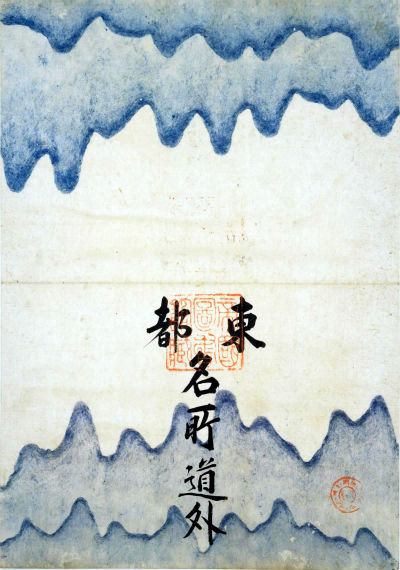 東都
名所道外